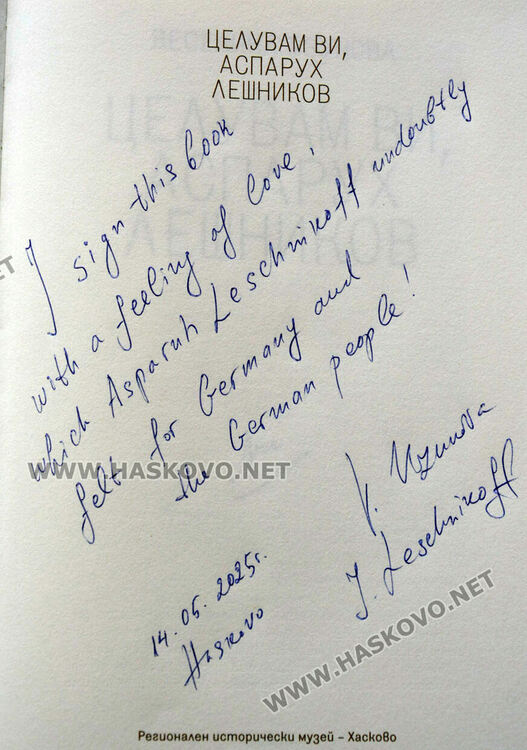 ЦЕЛУВАМ ВИ,
АСПАРУХ
ЛЕШНИКОВ
I sign this book
with a feeling of love,
which Asparuh Leschnikoff undoubtly
felt for Germany and
the German people!
V. Uzunova
J. Leschnikoff
14.05.2025г.
Haskovo
WWW.HASKOVO.NET
WWW.HASKOVO.NET
Регионален исторически музей – Хасково